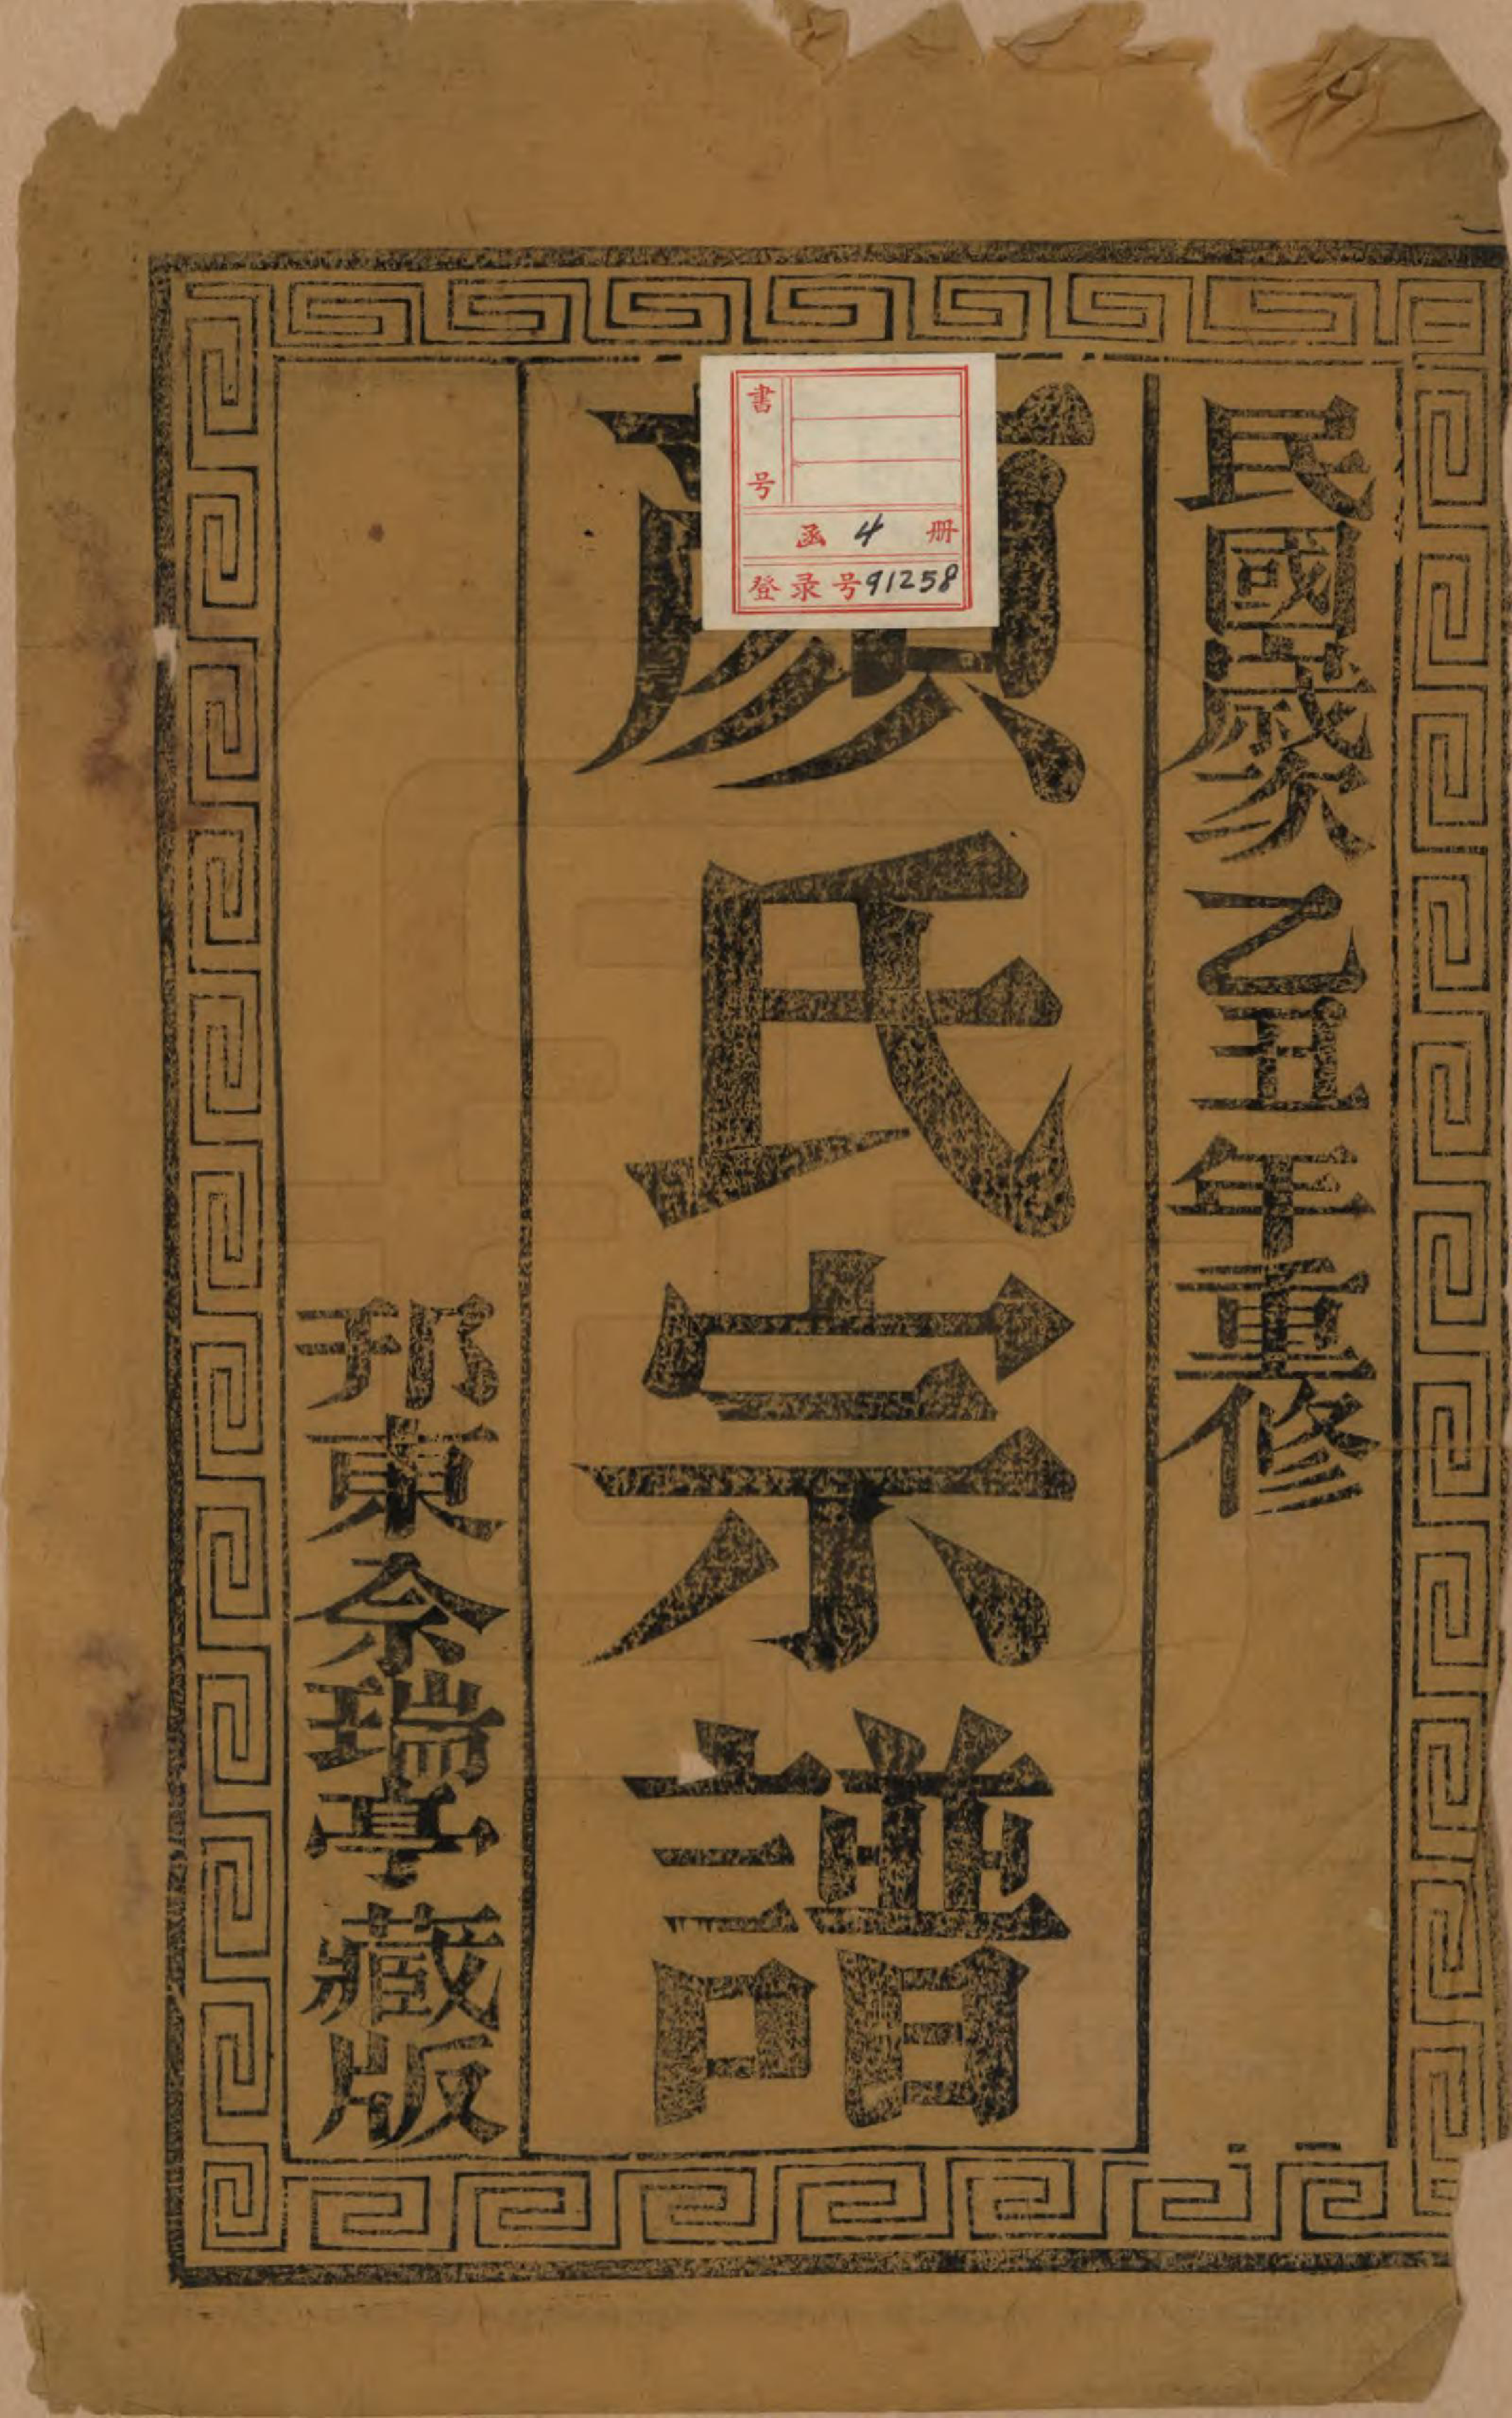 民國歲次乙丑年重修
顏氏宗譜
邦東佘瑞亭藏版
書号
函 4 册
登录号91258